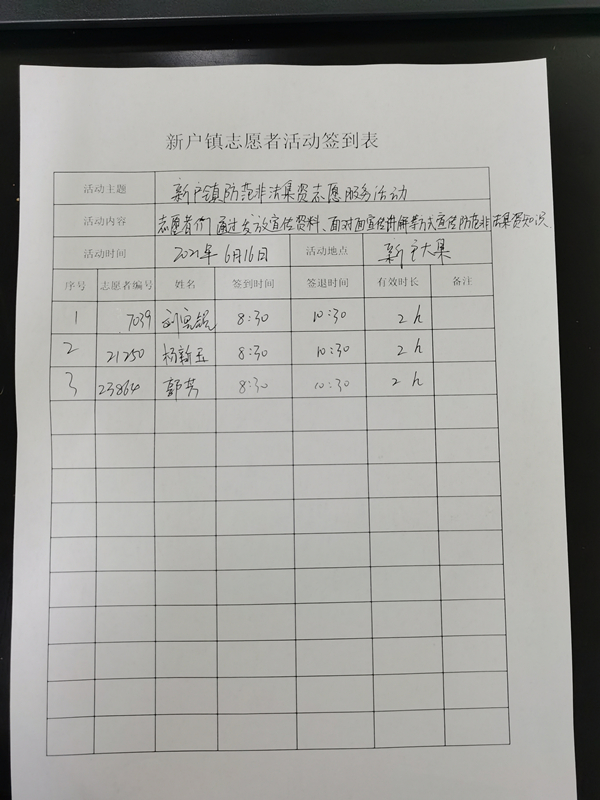 新户镇志愿者活动签到表
活动主题 新户镇防范非法集资志愿服务活动
活动内容 志愿者们通过发放宣传资料、面对面宣传讲解等方式宣传防范非法集资知识
活动时间 2021年6月16日 活动地点 新户大集
序号 志愿者编号 姓名 签到时间 签退时间 有效时长 备注
1 7039 8:30 10:30 2h
2 21250 杨新玉 8:30 10:30 2h
3 23864 郭芳 8:30 10:30 2h